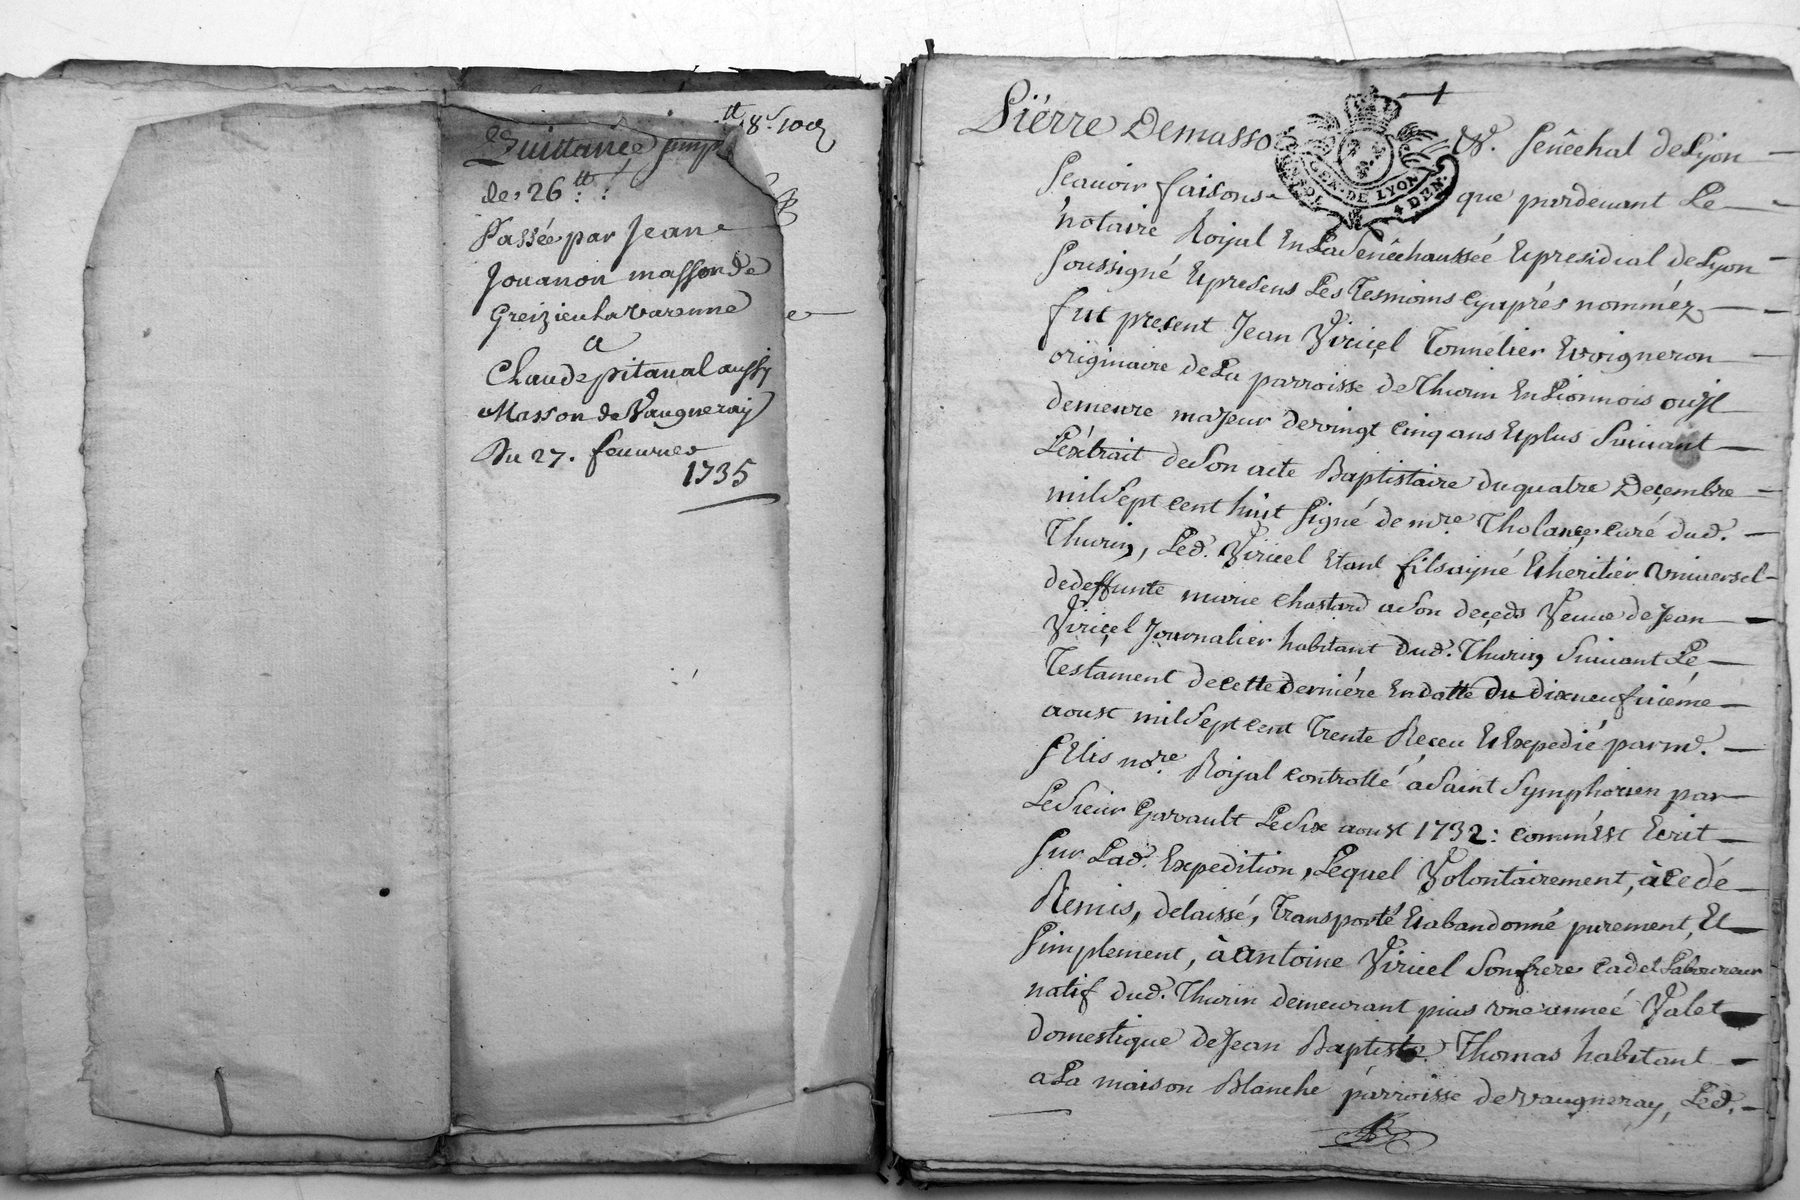 Quittance simp
de 26 tt :
Passée par Jean
Jouanon masson de
Greizieu la varenne
a
Claude pitaval aussy
Masson de Vaugneray
Du 27. feuurier
1735
tt 18 s 10 d
e
1
Piérre Demasso &. Senêchal de Lyon
GEN. DE LYON
4 DEN.
Scauoir faisons que pardeuant Le
notaire Roÿal En La Senêchaussée & presidial de Lyon
soussigné & presens Les Tesmoins cy aprés nomméz
fut present Jean Viricel Tonnelier & vigneron
originaire de La parroisse de Thurin En Lionnois ou jl
demeure majeur de vingt cinq ans & plus Suiuant
L'éxtrait de Son acte Baptistaire du quatre Deçembre
mil Sept cent huit signé de mre Tholance curé dud.
Thurin, Led. Viricel Etant fils ayné & héritier vniversel
de deffunte marie chastard a Son deçeds Veuue de Jean
Viriçel Journalier habitant dud. Thurin Suiuant Le
Testament de cette derniére En datte du dixneufuiéme
aoust mil Sept cent Trente Receu & Expedié par me.
no.re Roÿal controllé a Saint Symphorien par
Le Sieur Gavault Le Six aoust 1732 : comm'Est Ecrit
sur Lad. Expedition, Lequel Volontairement, à cedé
Remis, delaissé, Transporté & abandonné purement, Et
simplement, à antoine Viricel Son frere cadet Laboureur
natif dud. Thurin demeurant puis vne année Valet
domestique de Jean Baptiste Thomas habitant
a La maison Blanche parroisse de vaugneray, Led.